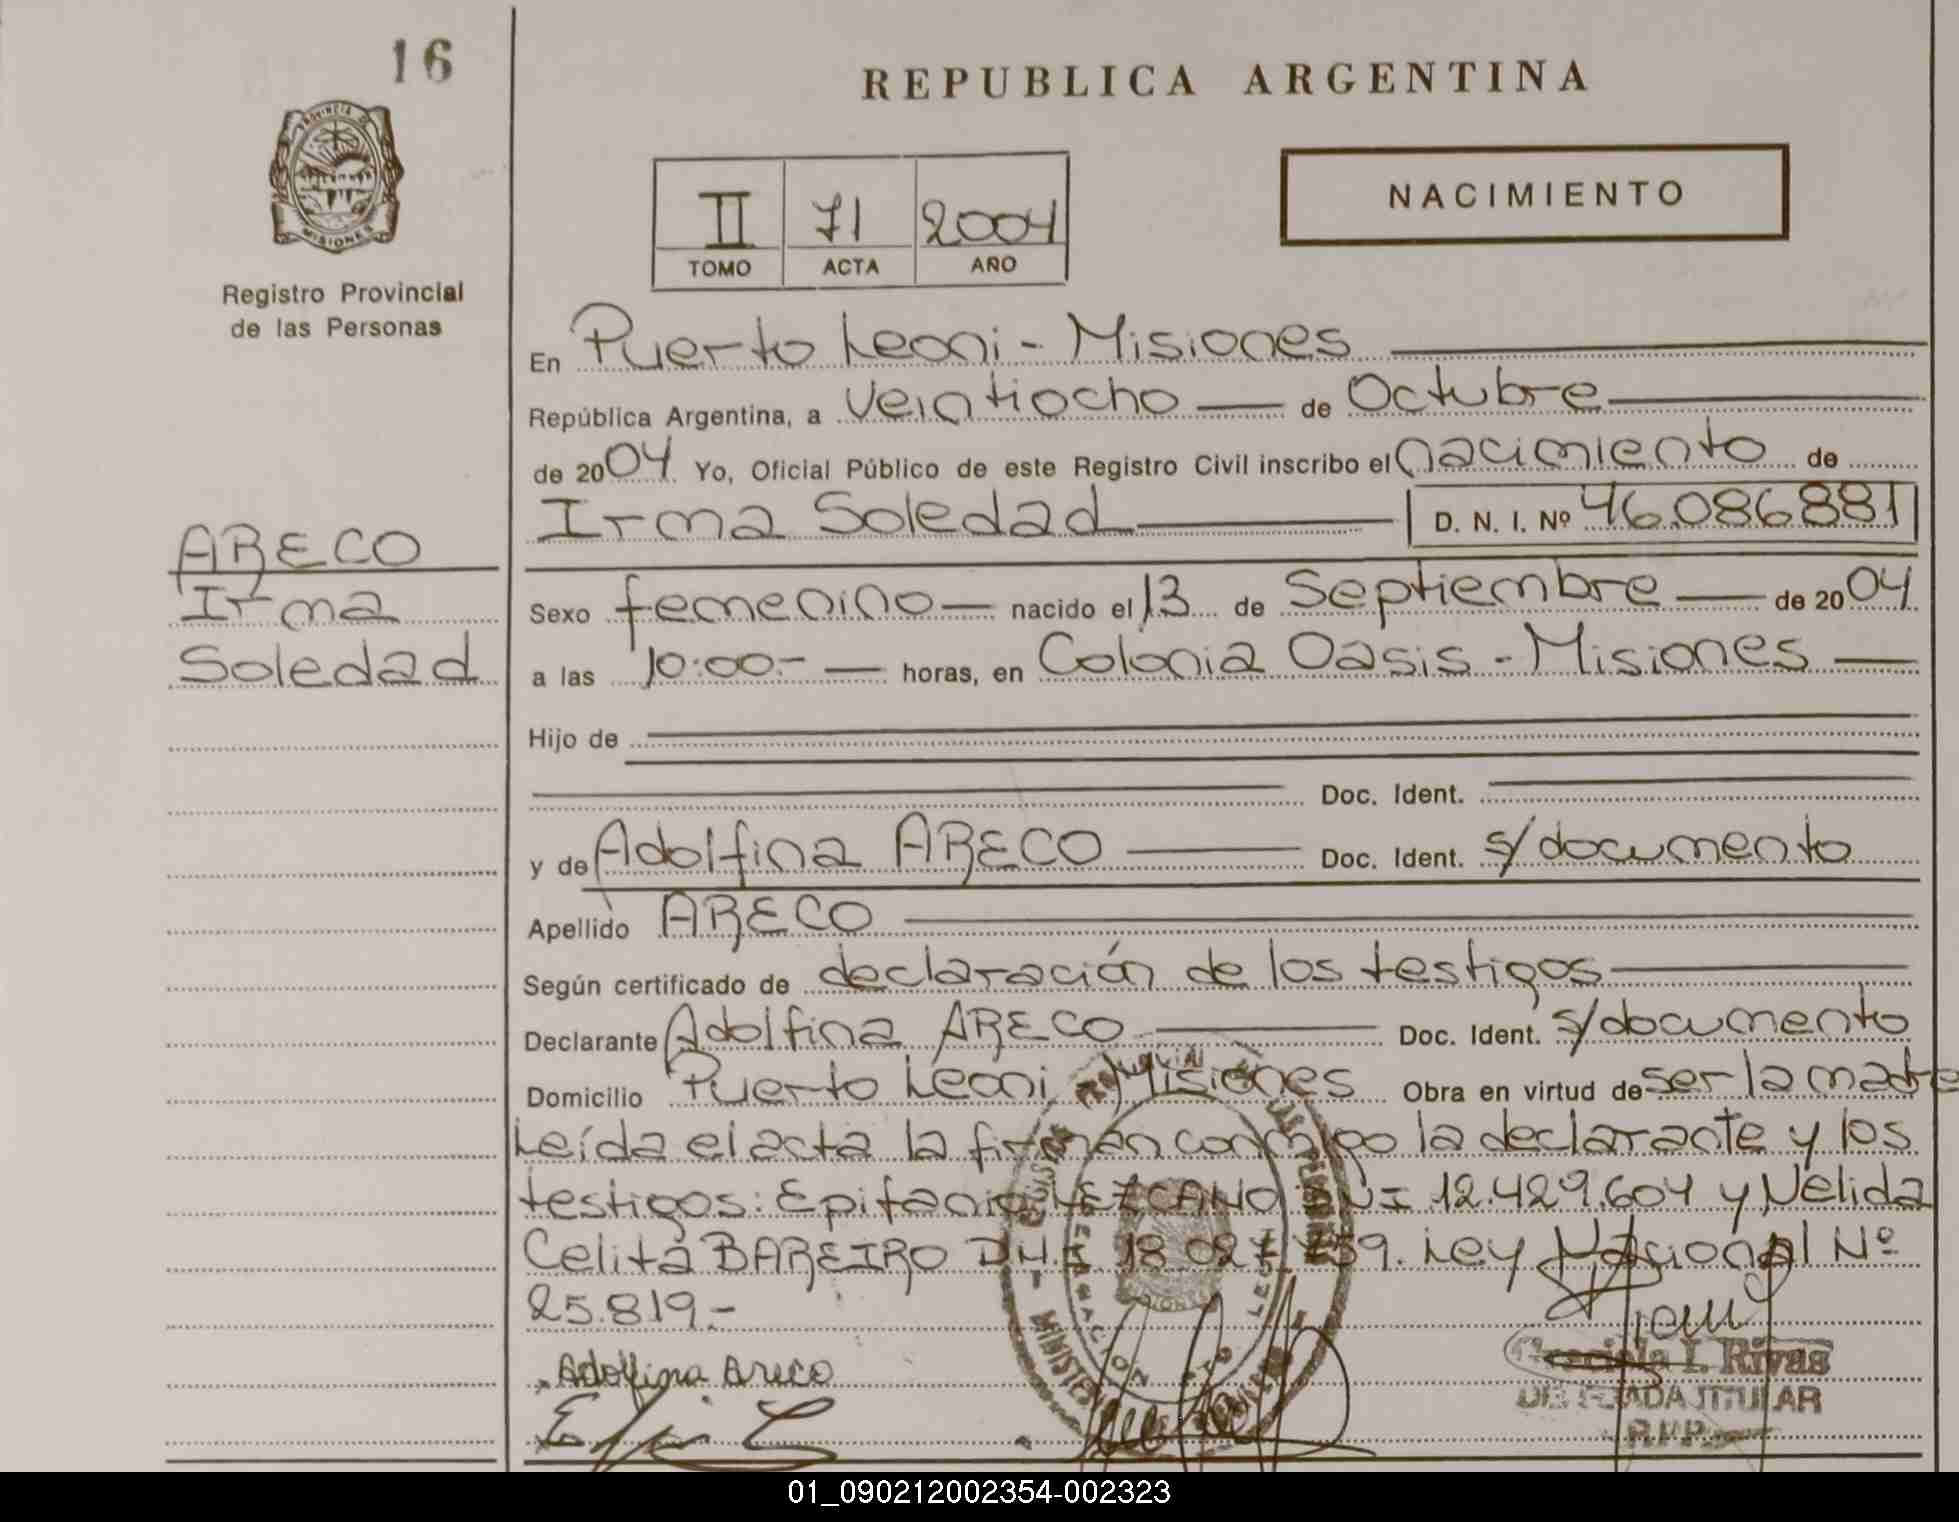 16
REPUBLICA ARGENTINA
PROVINCIA DE
MISIONES
Registro Provincial
de las Personas
II 71 2004
TOMO ACTA AÑO
NACIMIENTO
En Puerto Leoni - Misiones
República Argentina, a veintiocho de Octubre
de 2004 Yo, Oficial Público de este Registro Civil inscribo el nacimiento de
Irma Soledad D. N. I. Nº 46.086.881
ARECO
Irma
Soledad
Sexo femenino nacido el 13 de Septiembre de 2004
a las 10:00.- horas, en Colonia Oasis - Misiones
Hijo de
Doc. Ident.
y de Adolfina ARECO Doc. Ident. s/documento
Apellido ARECO
Según certificado de declaración de los testigos
Declarante Adolfina ARECO Doc. Ident. s/documento
Domicilio Puerto Leoni Misiones Obra en virtud de ser la madre
Leída el acta la firman conmigo la declarante y los
testigos: Epifanio LEZCANO DNI 12.429.604 y Nélida
Celita BAREIRO DNI 18.027 759. Ley Nacional Nº
25.819.-
Adolfina Areco
Graciela I. Rivas
DELEGADA TITULAR
R.P.P.
01_090212002354-002323